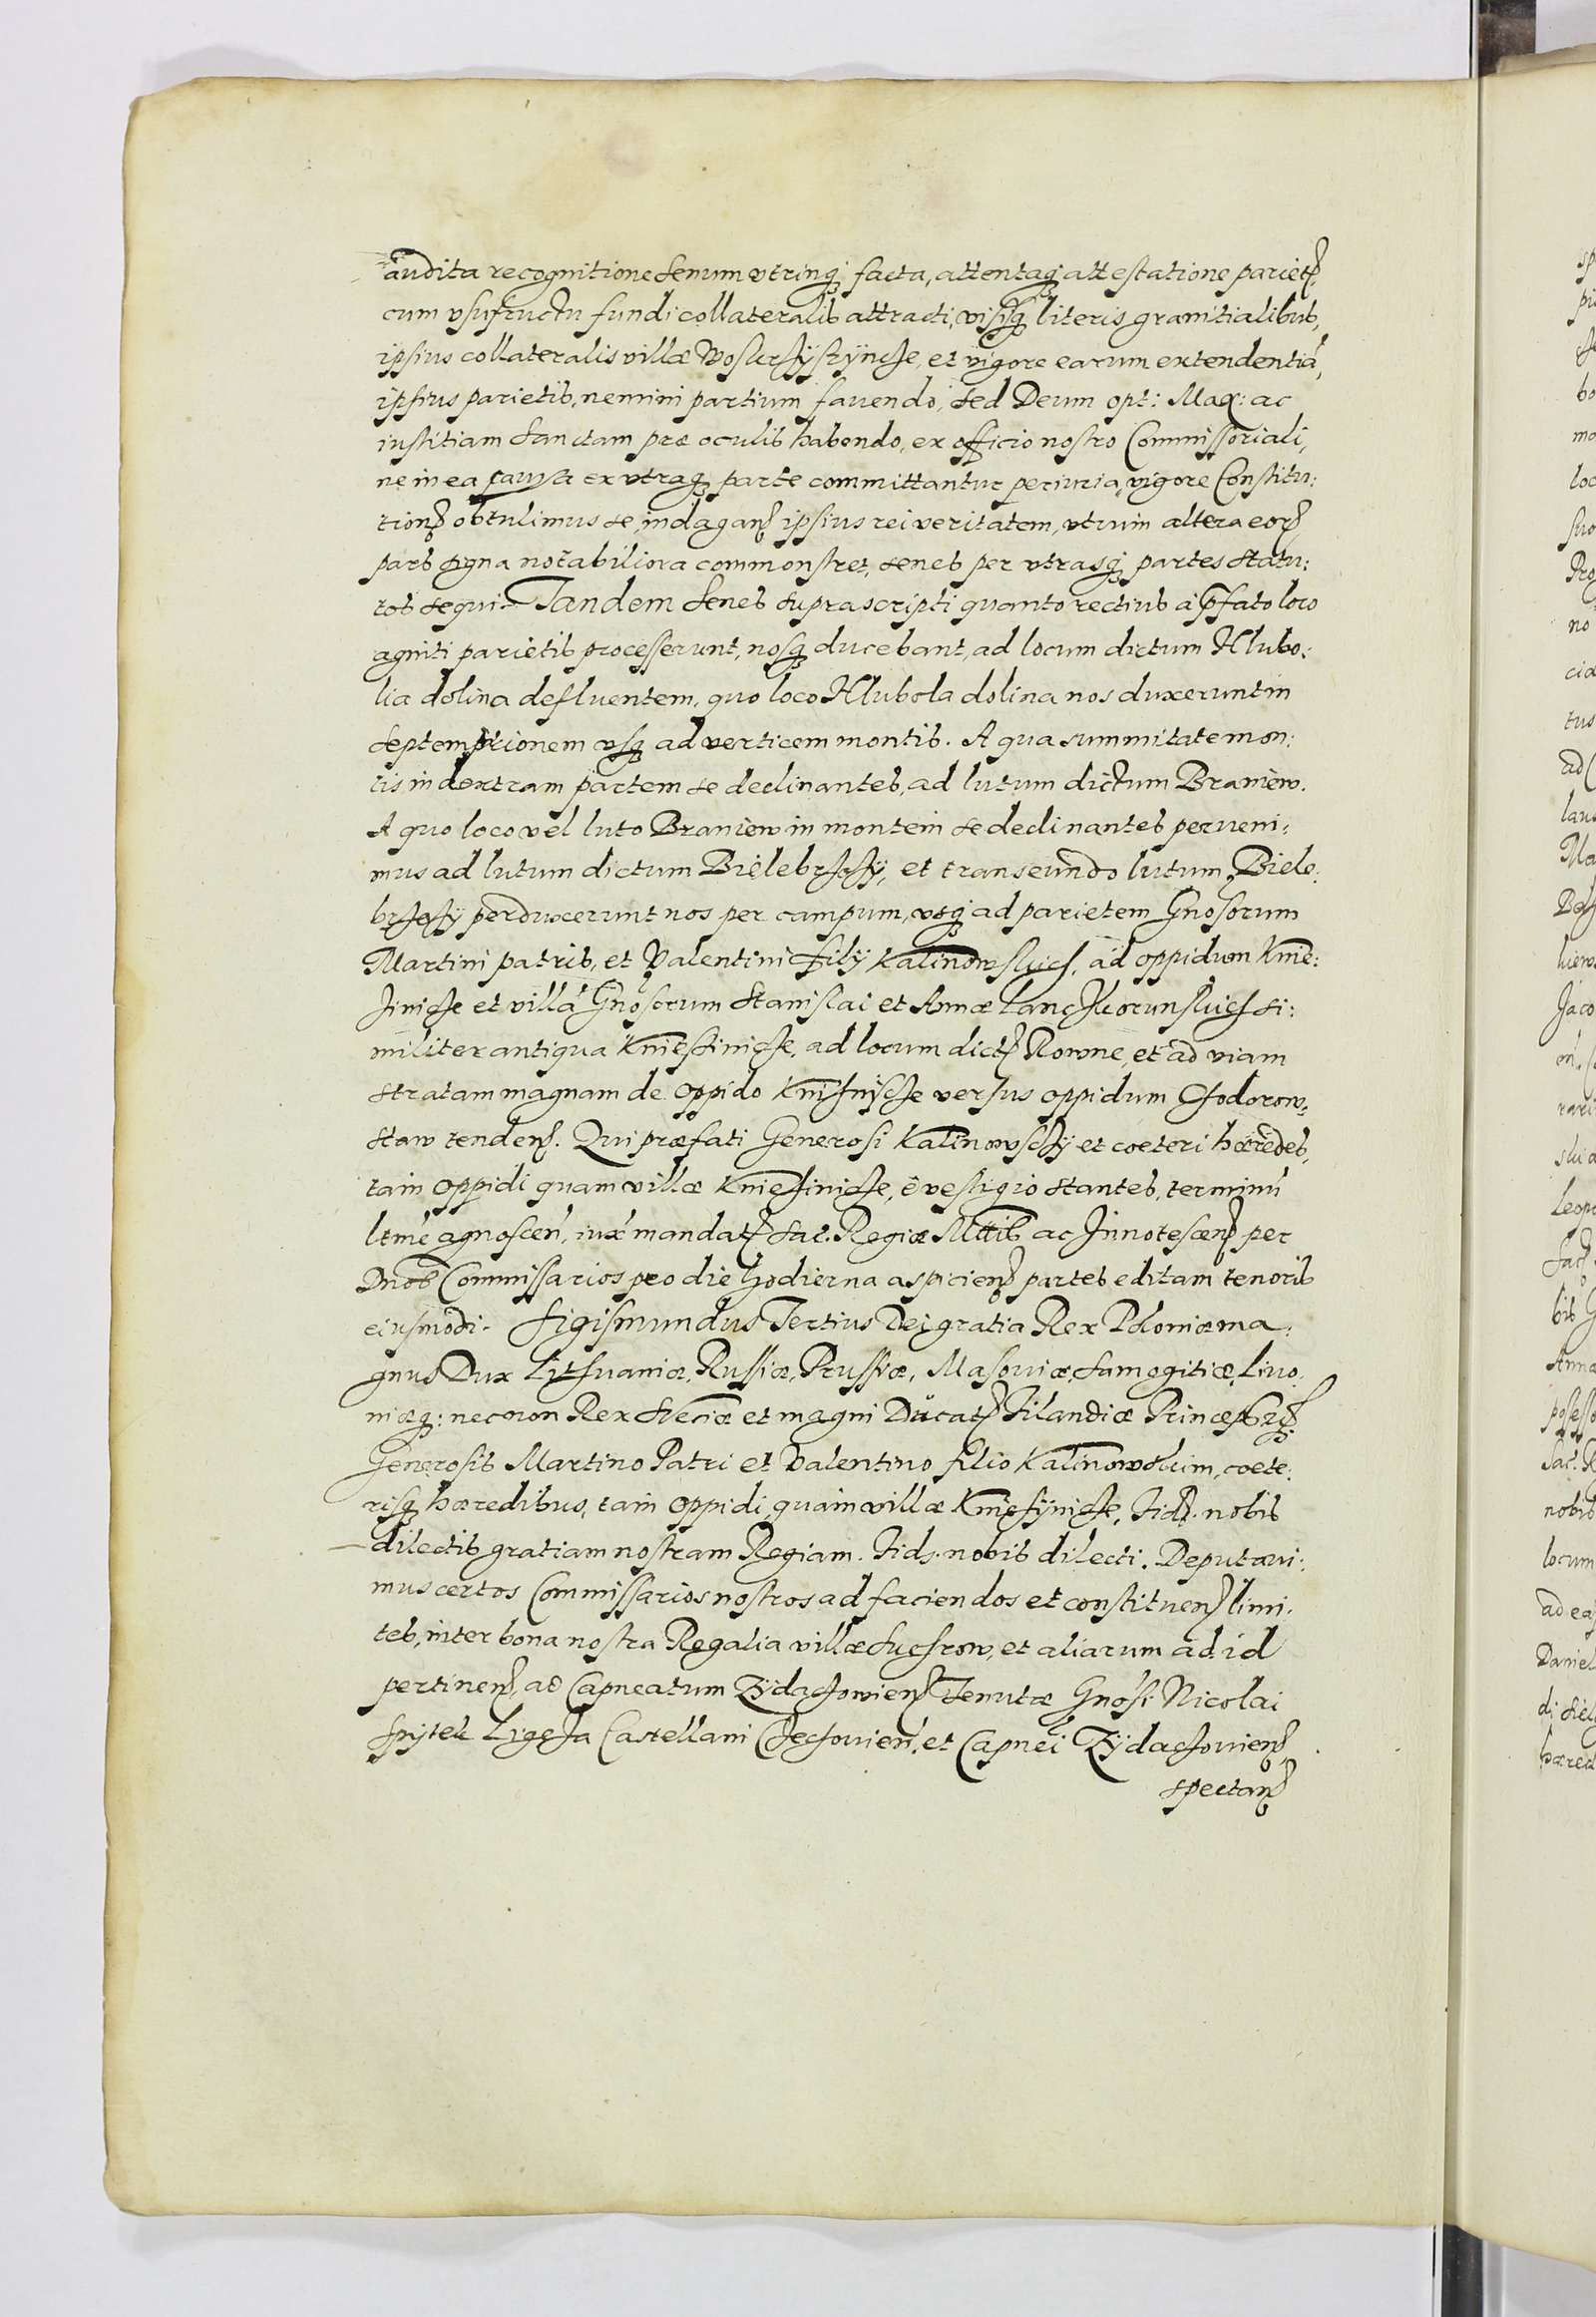 audita recognitione senum utrinq; facta, attentaq; attestatione pariet.
cum usufructu fundi collateralis attracti, visisq; literis granitialibus,
ipsius collateralis villæ et vigore earum extendentiã,
ipsius parietis, nemini partium favendo, sed Deum opt: Max: ac
iustitiam sanctam præ oculis habendo, ex officio nostro Commissoriali,
ne in ea causa ex utraq; parte committantur periuria, vigore Constitu:
tion. obtulimus se, indagan. ipsius rei veritatem, utrum altera eor.
pars signa notabiliora commonstret, senes per utrasq; partes statu:
tos sequi. Tandem Senes suprascripti quanto rectius à p̃fato loco
agniti parietis processerunt, nosq; ducebant, ad locum dictum Hlubo:
lia dolina defluentem, quo loco Hlubola dolina nos duxerunt in
septemptrionem usq; ad verticem montis. A qua summitate mon:
tis in dextram partem se declinantes, ad lutum dictum Braniew.
A quo loco vel luto Braniew in montem se declinantes perveni:
mus ad lutum dictum Bielebrzechÿ, et transeundo lutum Biele:
perduxerunt nos per campum, usq; ad parietem Gnosorum
Martini patris, et Valentini filÿ Kalinowskich, ad oppidum Knie:
hinicze et villã Gnosorum Stanislai et Annæ Lanczkorunskich si:
militer antiqua Kniehinicze, ad locum dict. Rowne, et ad viam
stratam magnam de oppido Knihynicze versus oppidum Chodorow,
staw tenden. Qui præfati Generosi Kalinowsczÿ et coeteri hæredes,
tam oppidi quam villæ Kniehinicze, è vestigio stantes, terminũ
ltmè agnoscen, iuxã mandat. Sac. Regiæ Mttis ac Innotescen. per
Dnos Commissarios pro die hodierna aspicien. partes editam tenoris
eiusmodi. Sigismundus Tertius Dei gratia Rex Poloniæ ma:
gnus Dux Lithuaniæ, Russiæ, Prussiæ, Masoviæ, Samogitiæ, Livo:
niæq: necnon Rex Sveciæ et magni Ducat. Filandiæ Princeps
Generosis Martino Patri et Valentino filio Kalinowskim, coete:
risq; hæredibus, tam oppidi, quam villæ Kniehÿnicze, Fid. nobis
dilectis gratiam nostram Regiam. Fids. nobis dilecti. Deputavi:
mus certos Commissarios nostros ad faciendos et constituen. limi:
tes, inter bona nostra Regalia villæ Suchrow, et aliarum ad id
pertinen, ad Capneatum Zÿdaczowien. Tenutæ Gnosi Nicolai
Spÿtek Ligęza Castellani Czechovien, et Capnei Zÿdaczowien.
spectan.